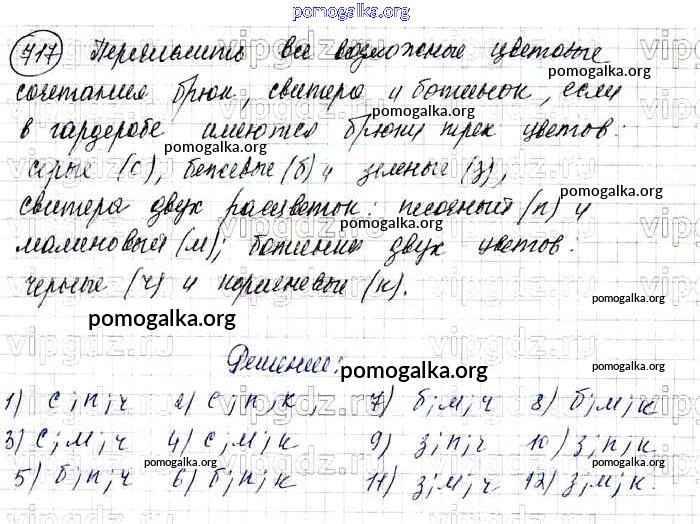 pomogalka.org
717 Перечислить все возможные цветовые
сочетания брюк, свитера и ботинок, если
в гардеробе имеются брюки трех цветов:
серые (с), бежевые (б) и зеленые (з),
свитера двух расцветок: песочный (п) и
малиновый (м); ботинки двух цветов:
черные (ч) и коричневые (к).
pomogalka.org
Решение:
pomogalka.org
1) с; п; ч 2) с; п; к 7) б; м; ч 8) б; м; к
3) с; м; ч 4) с; м; к 9) з; п; ч 10) з; п; к
5) б; п; ч 6) б; п; к 11) з; м; ч 12) з; м; к.